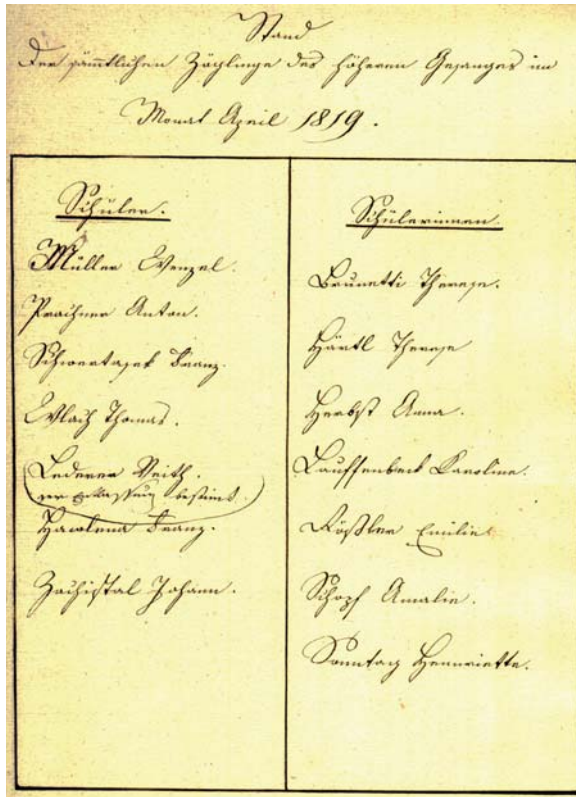 Stand
Der sämtlichen Zöglinge des höheren Gesanges im
Monat April 1819.
Schüler.
Müller Wenzel.
Prachner Anton.
Schwertasek Franz.
Wlach Thomas.
Lederer Veith.
der Entlassung bestimt.
Hawlena Franz.
Zachistal Johann.
Schülerinnen.
Brunetti Therese.
Härtl Therese
Herbst Anna.
Lauffenbeck Karoline.
Rößler Emilie
Schopf Amalie.
Sonntag Hennriette.